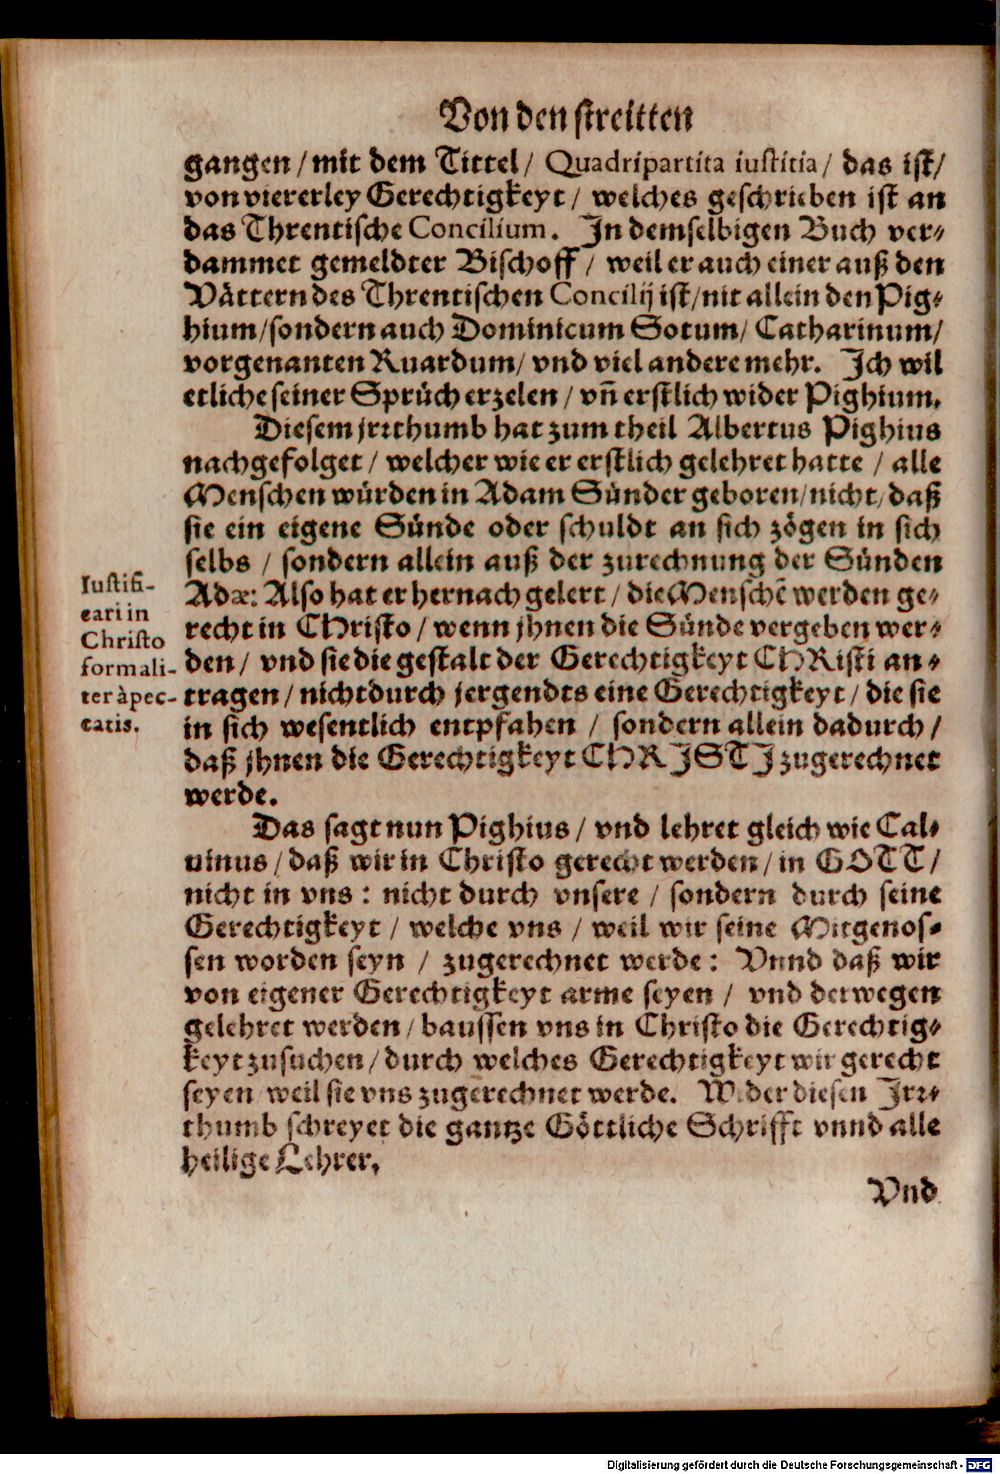 Von den streitten
gangen / mit dem Tittel / Quadripartita iustitia / das ist /
von viererley Gerechtigkeyt / welches geschrieben ist an
das Threntische Concilium. In demselbigen Buch ver-
dammet gemeldter Bischoff / weil er auch einer auß den
Vättern des Threntischen Concilij ist / nit allein den Pig-
hium / sondern auch Dominicum Sotum / Catharinum /
vorgenanten Ruardum / vnd viel andere mehr. Ich wil
etliche seiner Sprüch erzelen / vñ erstlich wider Pighium.
Diesem jrrthumb hat zum theil Albertus Pighius
nachgefolget / welcher wie er erstlich gelehret hatte / alle
Menschen würden in Adam Sünder geboren / nicht / daß
sie ein eigene Sünde oder schuldt an sich zögen in sich
selbs / sondern allein auß der zurechnung der Sünden
Adæ: Also hat er hernach gelert / die Menschẽ werden ge-
recht in CHristo / wenn jhnen die Sünde vergeben wer-
den / vnd sie die gestalt der Gerechtigkeyt CHRisti an-
tragen / nicht durch jergendts eine Gerechtigkeyt / die sie
in sich wesentlich entpfahen / sondern allein dadurch /
daß jhnen die Gerechtigkeyt CHRISTI zugerechnet
werde.
Iustifi-
cari in
Christo
formali-
ter à pec-
catis.
Das sagt nun Pighius / vnd lehret gleich wie Cal-
uinus / daß wir in Christo gerecht werden / in GOTT /
nicht in vns : nicht durch vnsere / sondern durch seine
Gerechtigkeyt / welche vns / weil wir seine Mitgenos-
sen worden seyn / zugerechnet werde : Vnnd daß wir
von eigener Gerechtigkeyt arme seyen / vnd derwegen
gelehret werden / baussen vns in Christo die Gerechtig-
keyt zusuchen / durch welches Gerechtigkeyt wir gerecht
seyen weil sie vns zugerechnet werde. Wider diesen Irr-
thumb schreyet die gantze Göttliche Schrifft vnnd alle
heilige Lehrer,
Vnd
Digitalisierung gefördert durch die Deutsche Forschungsgemeinschaft - DFG